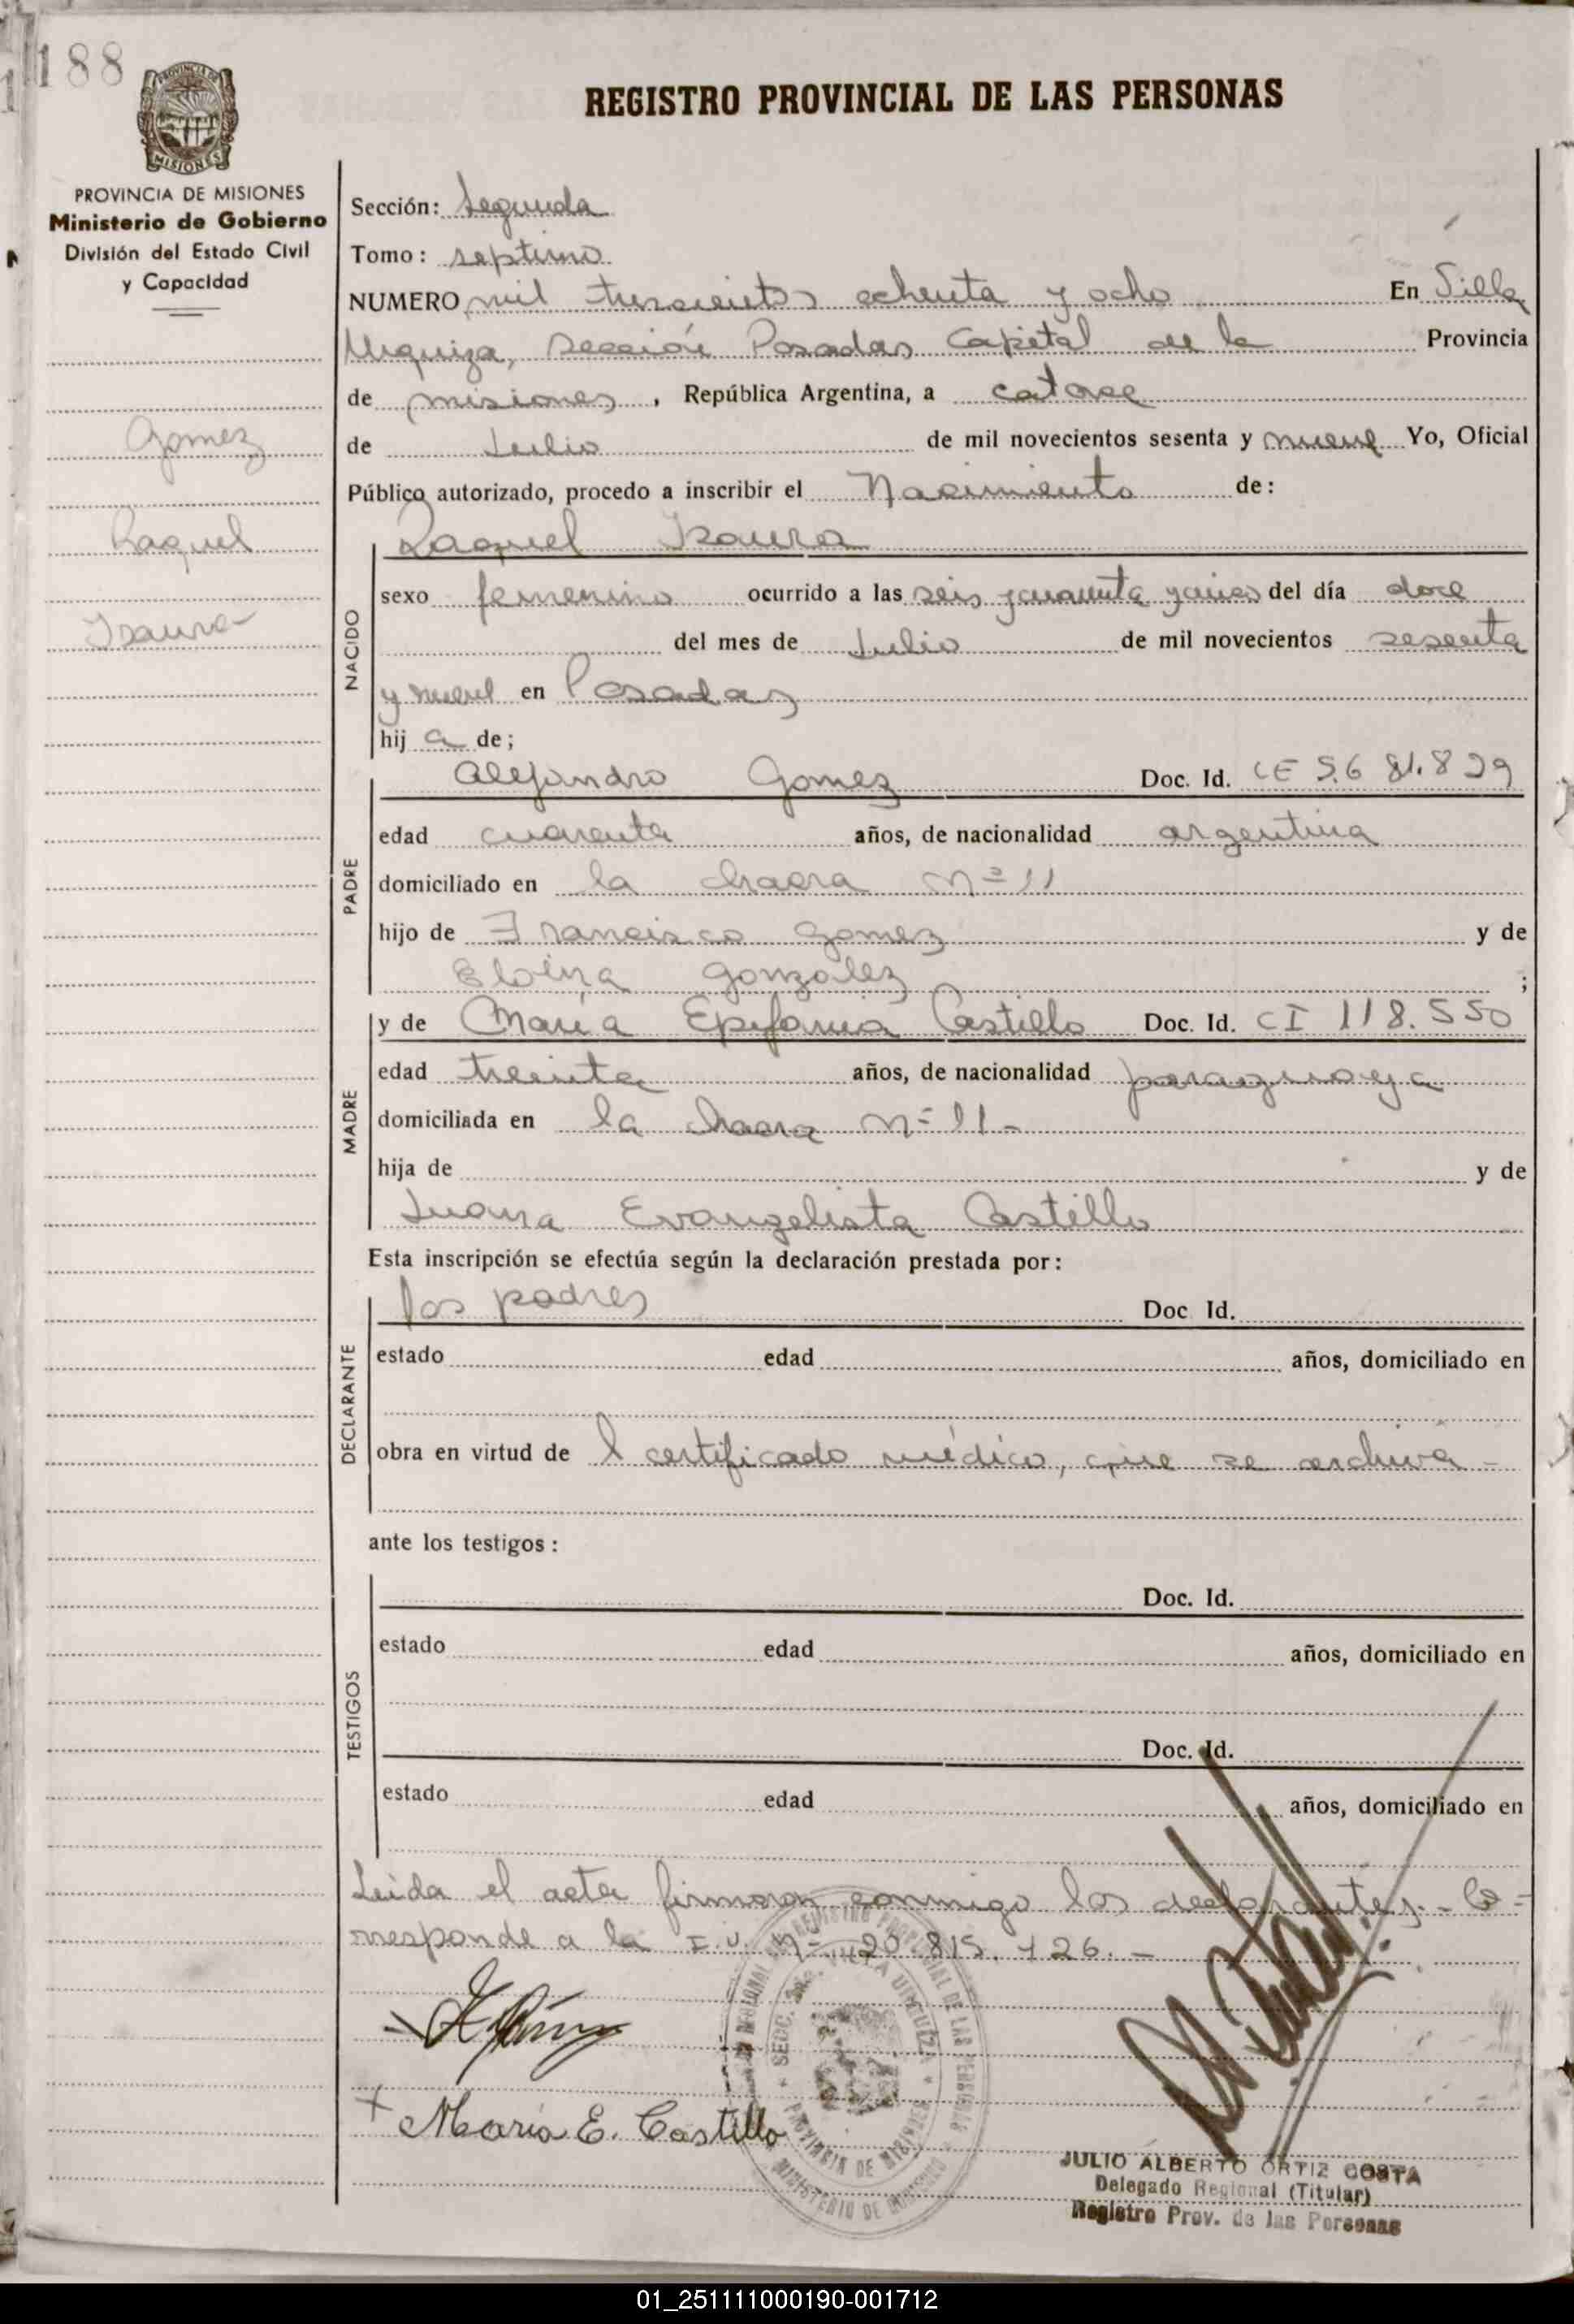 188
PROVINCIA DE MISIONES
REGISTRO PROVINCIAL DE LAS PERSONAS
PROVINCIA DE MISIONES
Ministerio de Gobierno
División del Estado Civil
y Capacidad
Gomez
Raquel
Isaura
Sección: Segunda
Tomo: septimo
NUMERO mil trescientos ochenta y ocho En Villa
Urquiza, Sección Posadas Capital de la Provincia
de misiones, República Argentina, a catorce
de Julio de mil novecientos sesenta y nueve Yo, Oficial
Público autorizado, procedo a inscribir el Nacimiento de:
NACIDO
Raquel Isaura
sexo femenino ocurrido a las seis y cuarenta y cinco del día doce
del mes de Julio de mil novecientos sesenta
y nueve en Posadas
hij a de;
PADRE
Alejandro Gomez Doc. Id. LE 5.681.829
edad cuarenta años, de nacionalidad argentina
domiciliado en la chacra Nº 11
hijo de Francisco Gomez y de
Gonzalez ;
MADRE
y de María Epifania Castillo Doc. Id. CI 118.550
edad treinta años, de nacionalidad paraguaya
domiciliada en la chacra Nº 11-
hija de y de
Juana Evangelista Castillo
Esta inscripción se efectúa según la declaración prestada por:
DECLARANTE
los padres Doc Id.
estado edad años, domiciliado en
obra en virtud de l certificado médico, que se archiva -
ante los testigos :
TESTIGOS
Doc. Id.
estado edad años, domiciliado en
Doc. Id.
estado edad años, domiciliado en
Leida el acta firmaron conmigo los declarantes.- Co=
rresponde a la I.U. Nº 20.815.426. -
SECC. VILLA URQUIZA
PROVINCIA DE MISIONES
MINISTERIO DE GOBIERNO
María E. Castillo
JULIO ALBERTO ORTIZ COSTA
Delegado Regional (Titular)
Registro Prov. de las Personas
01_251111000190-001712